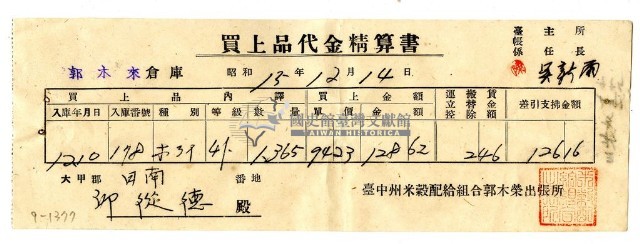 買上品代金精算書
臺帳係 主任 所長
吳新雨
郭木来倉庫 昭和15年12月14日
買上品內譯 買上金額 運立 搬替 賃金 控除額 差引支拂金額
入庫年月日 入庫番號 種別 等級 數量 單價 金額
國史館臺灣文獻館
TAIWAN HISTORICA
1210 178 41 1365 9423 12862 246 12616
大甲郡 田南 番地
德 殿
臺中州米穀配給組合郭木榮出張所
9-1377